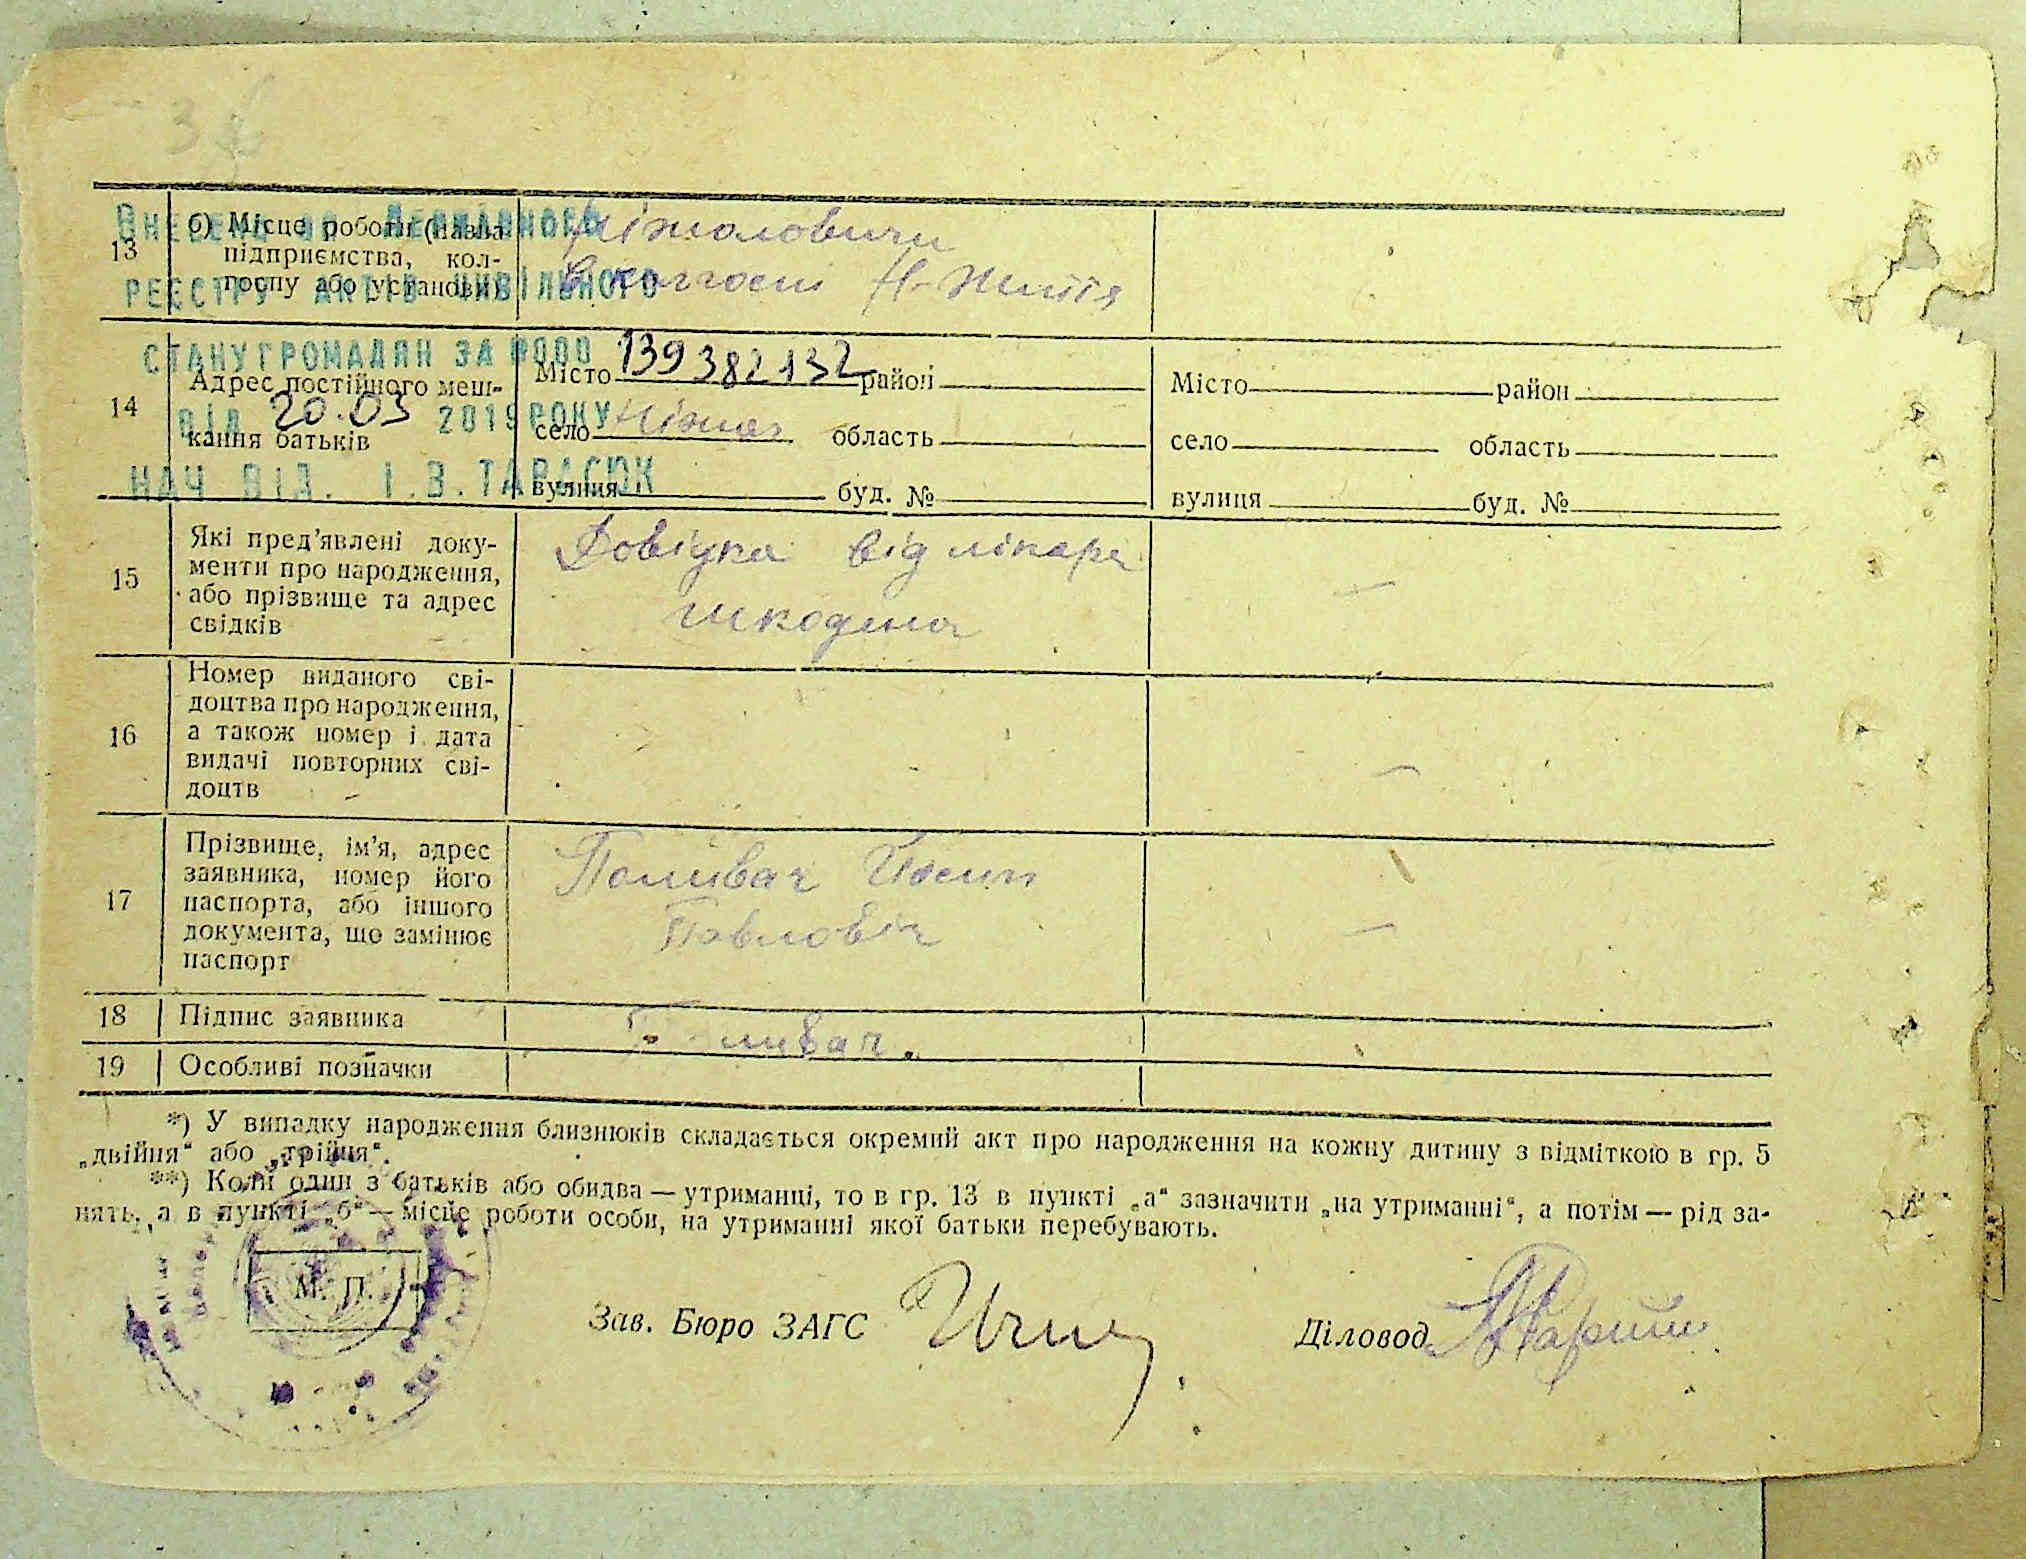 13 б) Місце роботи (назва
підприємства, кол-
госпу або установи)
ВНЕСЕНО ДО ДЕРЖАВНОГО
РЕЄСТРУ АКТІВ ЦИВІЛЬНОГО
СТАНУ ГРОМАДЯН ЗА №000 139382132
ВІД 20.03 2019 РОКУ
НАЧ ВІД. І.В.ТАРАСЮК
в колгоспі Н-Життя
14 Адрес постійного меш-
кання батьків
Місто район
село область
вулиця буд. №
Місто район
село область
вулиця буд. №
15 Які пред'явлені доку-
менти про народження,
або прізвище та адрес
свідків
Довідка від лікаря
16 Номер виданого сві-
доцтва про народження,
а також номер і дата
видачі повторних сві-
доцтв
17 Прізвище, ім'я, адрес
заявника, номер його
паспорта, або іншого
документа, що замінює
паспорт
Поливач Йосип
Павловіч
18 Підпис заявника
Поливач.
19 Особливі позначки
*) У випадку народження близнюків складається окремий акт про народження на кожну дитину з відміткою в гр. 5
„двійня" або „трійня".
**) Коли один з батьків або обидва — утриманці, то в гр. 13 в пункті „а" зазначити „на утриманні", а потім — рід за-
нять, а в пункті „б" — місце роботи особи, на утриманні якої батьки перебувають.
М. П.
Зав. Бюро ЗАГС
Діловод